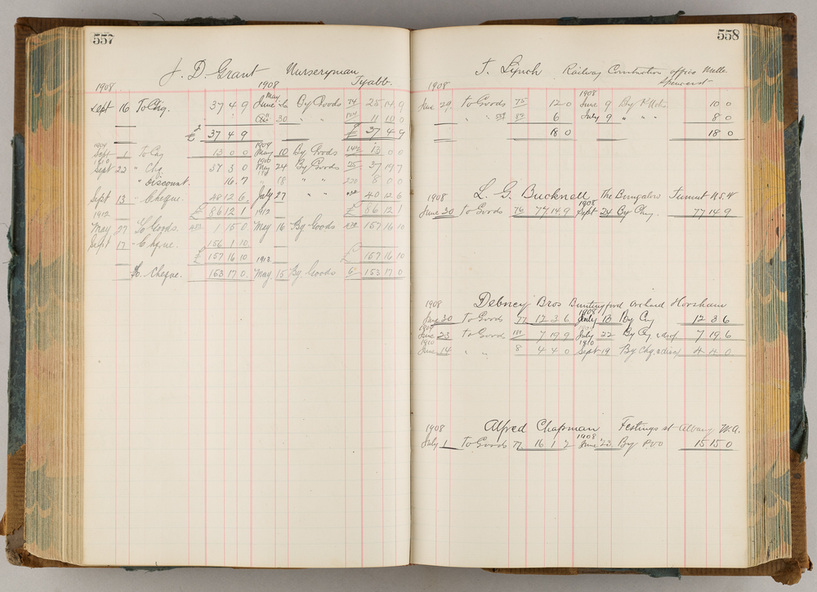 557
J. D Grant Nurseryman Tyabb.
1908 1908
Sept 16 To Chq. 37 4 9 June By Goods 74 25 14 9
Oct 30 " " 11 10 0
£ 37 4 9 £ 37 4 9
Sept 1 To Chq 13 0 0 1909 May 10 By Goods 13 0 0
1910 Sept 22 " Chq 37 3 0 1910 May 24 By Goods 37 19 7
" Discount. 16. 7 " 18 " "
Sept 13 " Cheque. 48 12 6 July 27 " " 40 12 6
£ 86 12 1 £ 86 12 1
1912 1912
May 27 To Goods 1 15 0 May 16 By Goods 157 16 10
Sept 17 " Chque. 156 1 10
£ 157 16 10 £ 157 16 10
1913
To Cheque. 153 17 0 May 15 By Goods 153 17 0
558
T. Lynch Railway Construction office Melb
1908 1908
June 20 to Goods 75 12 0 June 9 By 10 0
" " 6 July 9 " " 8 0
18 0 18 0
L. G. Bucknell The Bungalow N.S.W
1908 1908
June 30 to Goods 76 77 14 9 Sept 24 By Chq. 77 14 9
Debney Bros Buntingford orchard Horsham
1908 1908
June 20 to Goods 77 12 3 6 July 13 By Chq 12 3 6
1909 June 23 to Goods 7 19 9 July 22 By Chq 7 19 6
1910 1910
June 14 " " 8 4 4 0 Sept 19 By Chq
Alfred Chapman Festings st Albany W.A.
1908 1908
July 1 to Goods 77 16 1 2 June 23 By POO 15 15 0